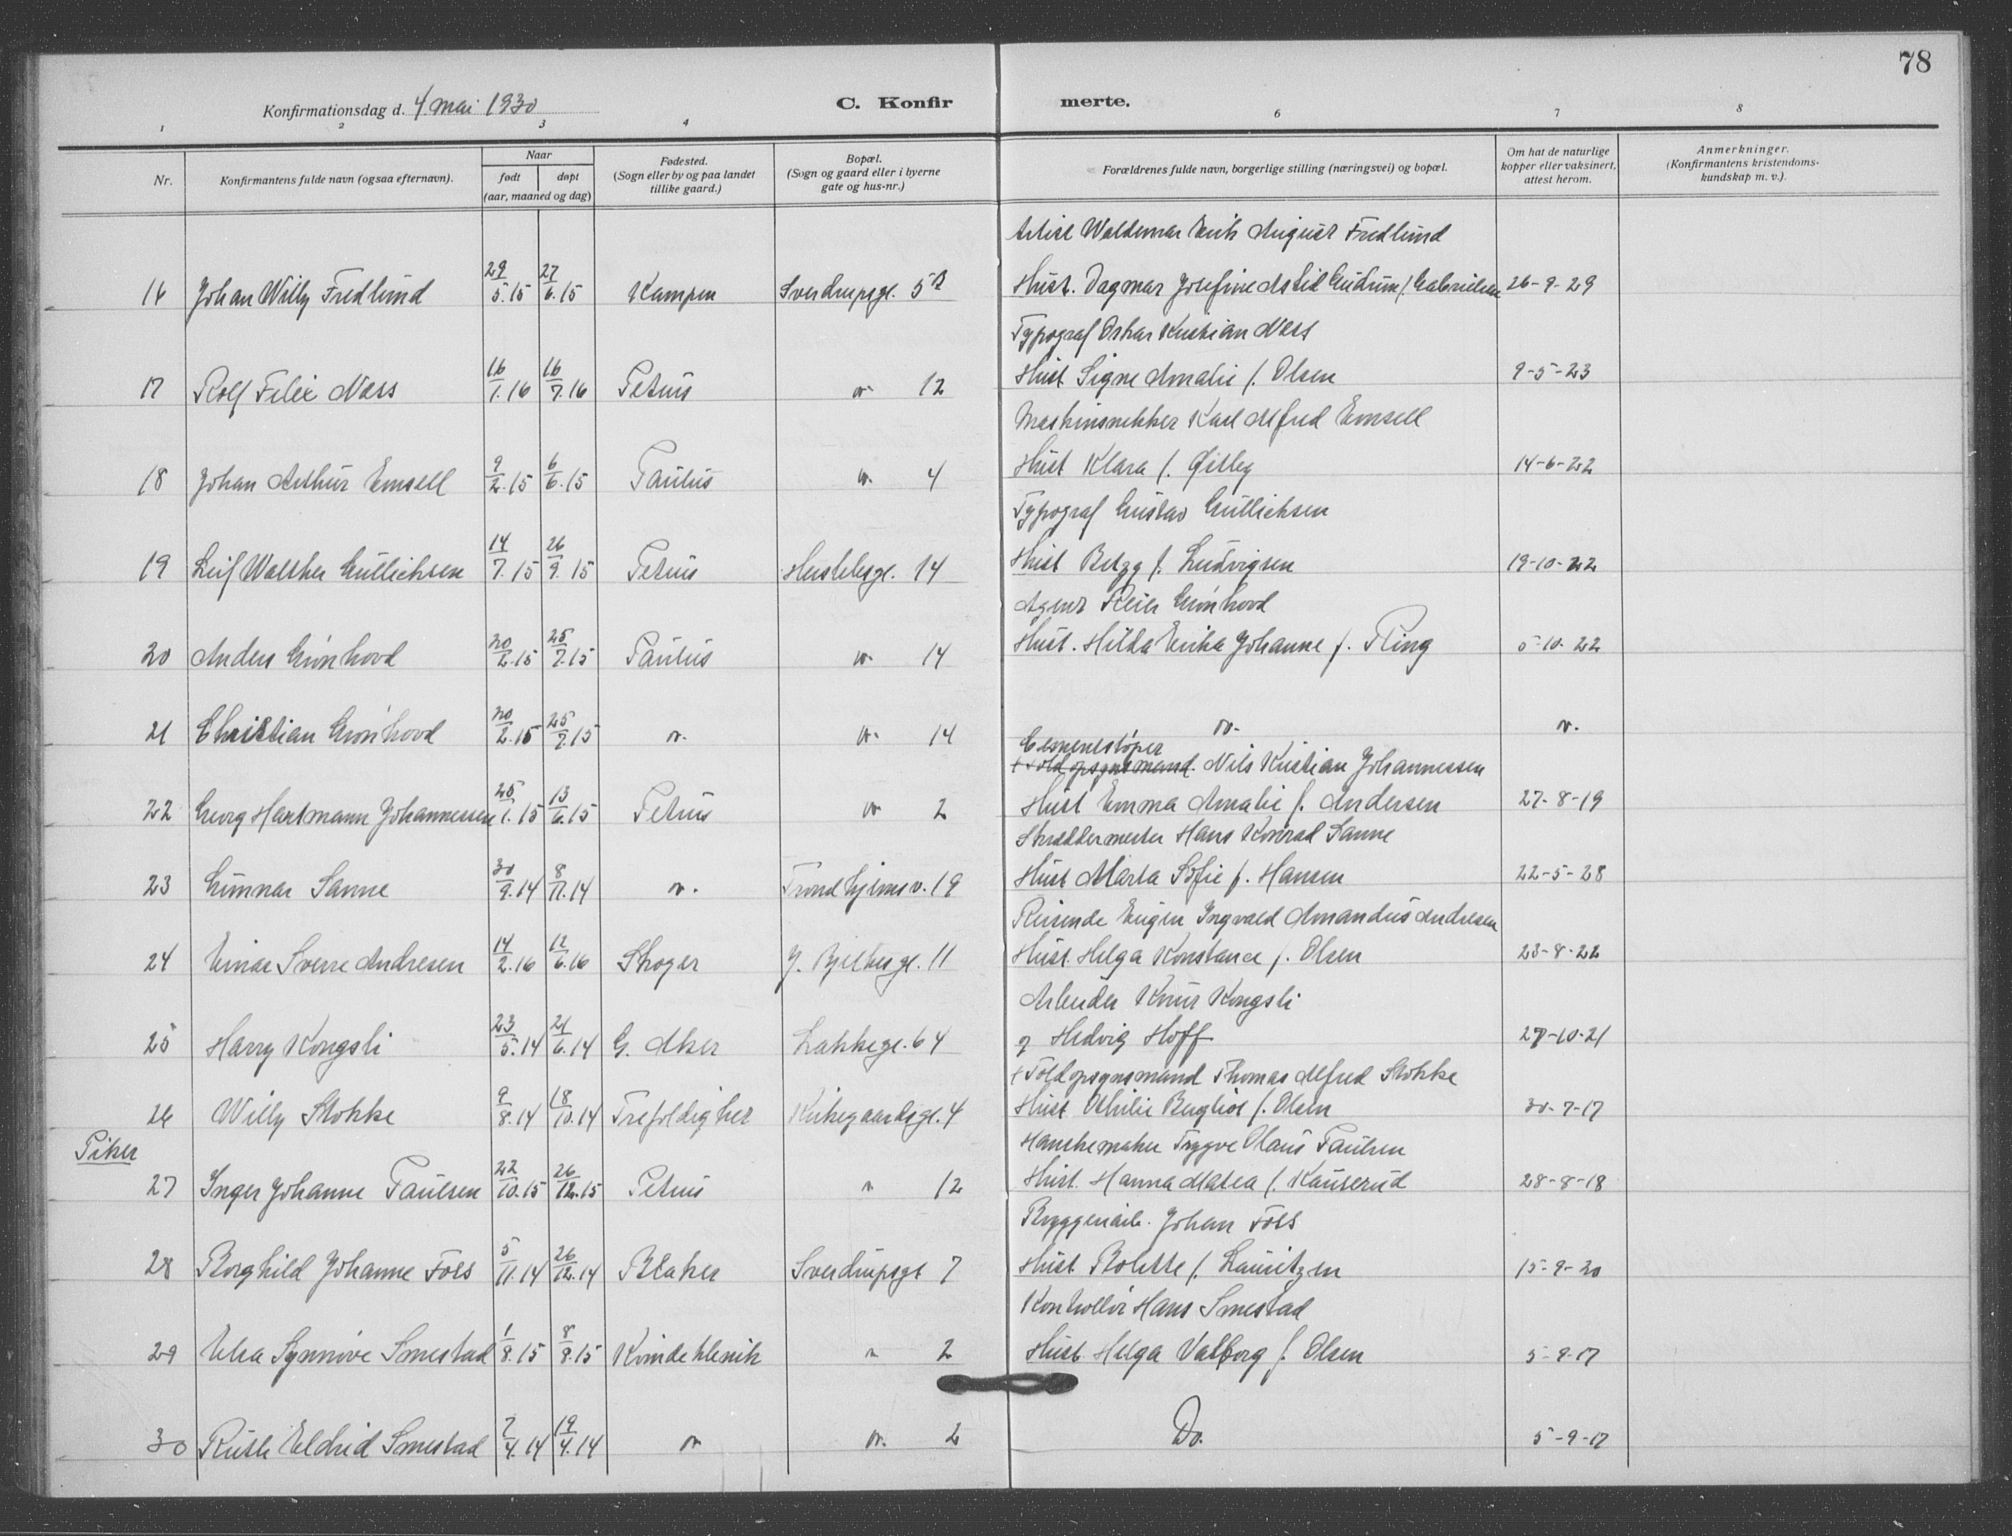 78
Konfirmationsdag d. 4. mai 1930
C. Konfir merte.
1 2 3 4 6 7 8
Nr.
Konfirmantens fulde navn (ogsaa efternavn).
Naar
født
døpt
(aar, maaned og dag)
Fødested.
(Sogn eller by og paa landet
tillike gaard.)
Bopæl.
(Sogn og gaard eller i byerne
gate og hus-nr.)
Forældrenes fulde navn, borgerlige stilling (næringsvei) og bopæl.
Om hat de naturlige
kopper eller vaksinert,
attest herom.
Anmerkninger.
(Konfirmantens kristendoms-
kundskap m. v.).
Waldemar Erik August Fredlund
16 Johan Willy Fredlund 29/5.15 27/6.15 Kampen Sverdrupsgt. 5 Hust. Dagmar Josefine Astrid Gudrun f. Gabrielsen 26-9-29
Typograf Oskar Kristian Næss
17 Rolf Felix Næss 16/1.16 16/7.16 Petrus " 12 Hust. Signe Amalie f. Olsen 9-5-23
Maskinsnekker Karl Alfred Emsell
18 Johan Arthur Emsell 9/2.15 6/6.15 Paulus " 4 Hust Klara f. 14-6-22
Typograf Gustav Gullichsen
19 Leif Walther Gullichsen 14/7.15 26/9.15 Petrus 14 Hust Betzy f. Ludvigsen 19-10-22
Agent Peter Grønhovd
20 Anders Grønhovd 20/2.15 25/7.15 Paulus " 14 Hust. Hilda Erika Johanne f. Ring 5-10-22
21 Christian Grønhovd 20/2.15 25/7.15 " " 14 " "
Cementstøper
+ Toldopsynsmand. Nils Kristian Johannessen
22 Georg Hartmann Johannessen 25/1.15 13/6.15 Petrus " 2 Hust Emma Amalie f. Andersen 27-8-19
Skræddermester Hans Konrad Sanne
23 Gunnar Sanne 30/9.14 8/11.14 " Trondhjemsv. 19 Hust Marta Sofie f. Hansen 22-5-28
Reisende Eugen Ingvald Amandus Andresen
24 Einar Sverre Andresen 14/2.16 12/6.16 Skoger J. Bjelkesgt. 11 Hust. Helga Konstance f. Olsen 23-8-22
Arbeider Knut Kongsli
25 Harry Kongsli 23/5.14 21/6.14 G. Aker Lakkegt. 64 og Hedvig Hoff 27-10-21
+ Toldopsynsmand Thomas Alfred Stokke
26 Willy Stokke 9/8.14 18/10.14 Trefoldighet Kirkegaardsgt. 4 Hust Othilie Bergliot f. Olsen 30-7-17
Piker
Hanskemaker Trygve Olaus Paulsen
27 Inger Johanne Paulsen 22/10.15 26/12.15 Petrus " 12 Hust. Hanna Matea f. Kauserud 28-8-18
Bryggeriarb. Johan Foss
28 Borghild Johanne Foss 5/11.14 26/12.14 Blaker Sverdrupsgt 7 Hust. Bolette f. Lauritzen 15-9-20
Kontrollør Hans Smestad
29 Elsa Synnøve Smestad 1/8.15 8/8.15 Kvindeklinik " 2 Hust. Helga Valborg f. Olsen 5-9-17
30 Ruth Eldrid Smestad 7/4.14 19/4.14 " " 2 Do. 5-9-17